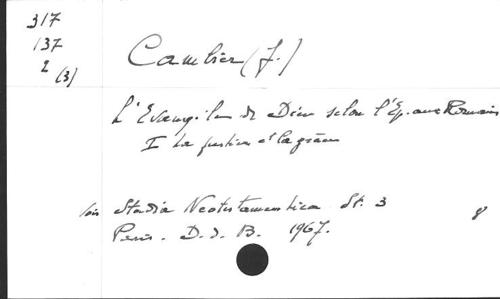 317
137
2
(3)
Cambier (J.)
L'Evangile de Dieu selon l'Ep. aux Romains
I La justice et la grâce
Voir Studia Neotestamentica St. 3
Paris. D. d. B. 1967.
8